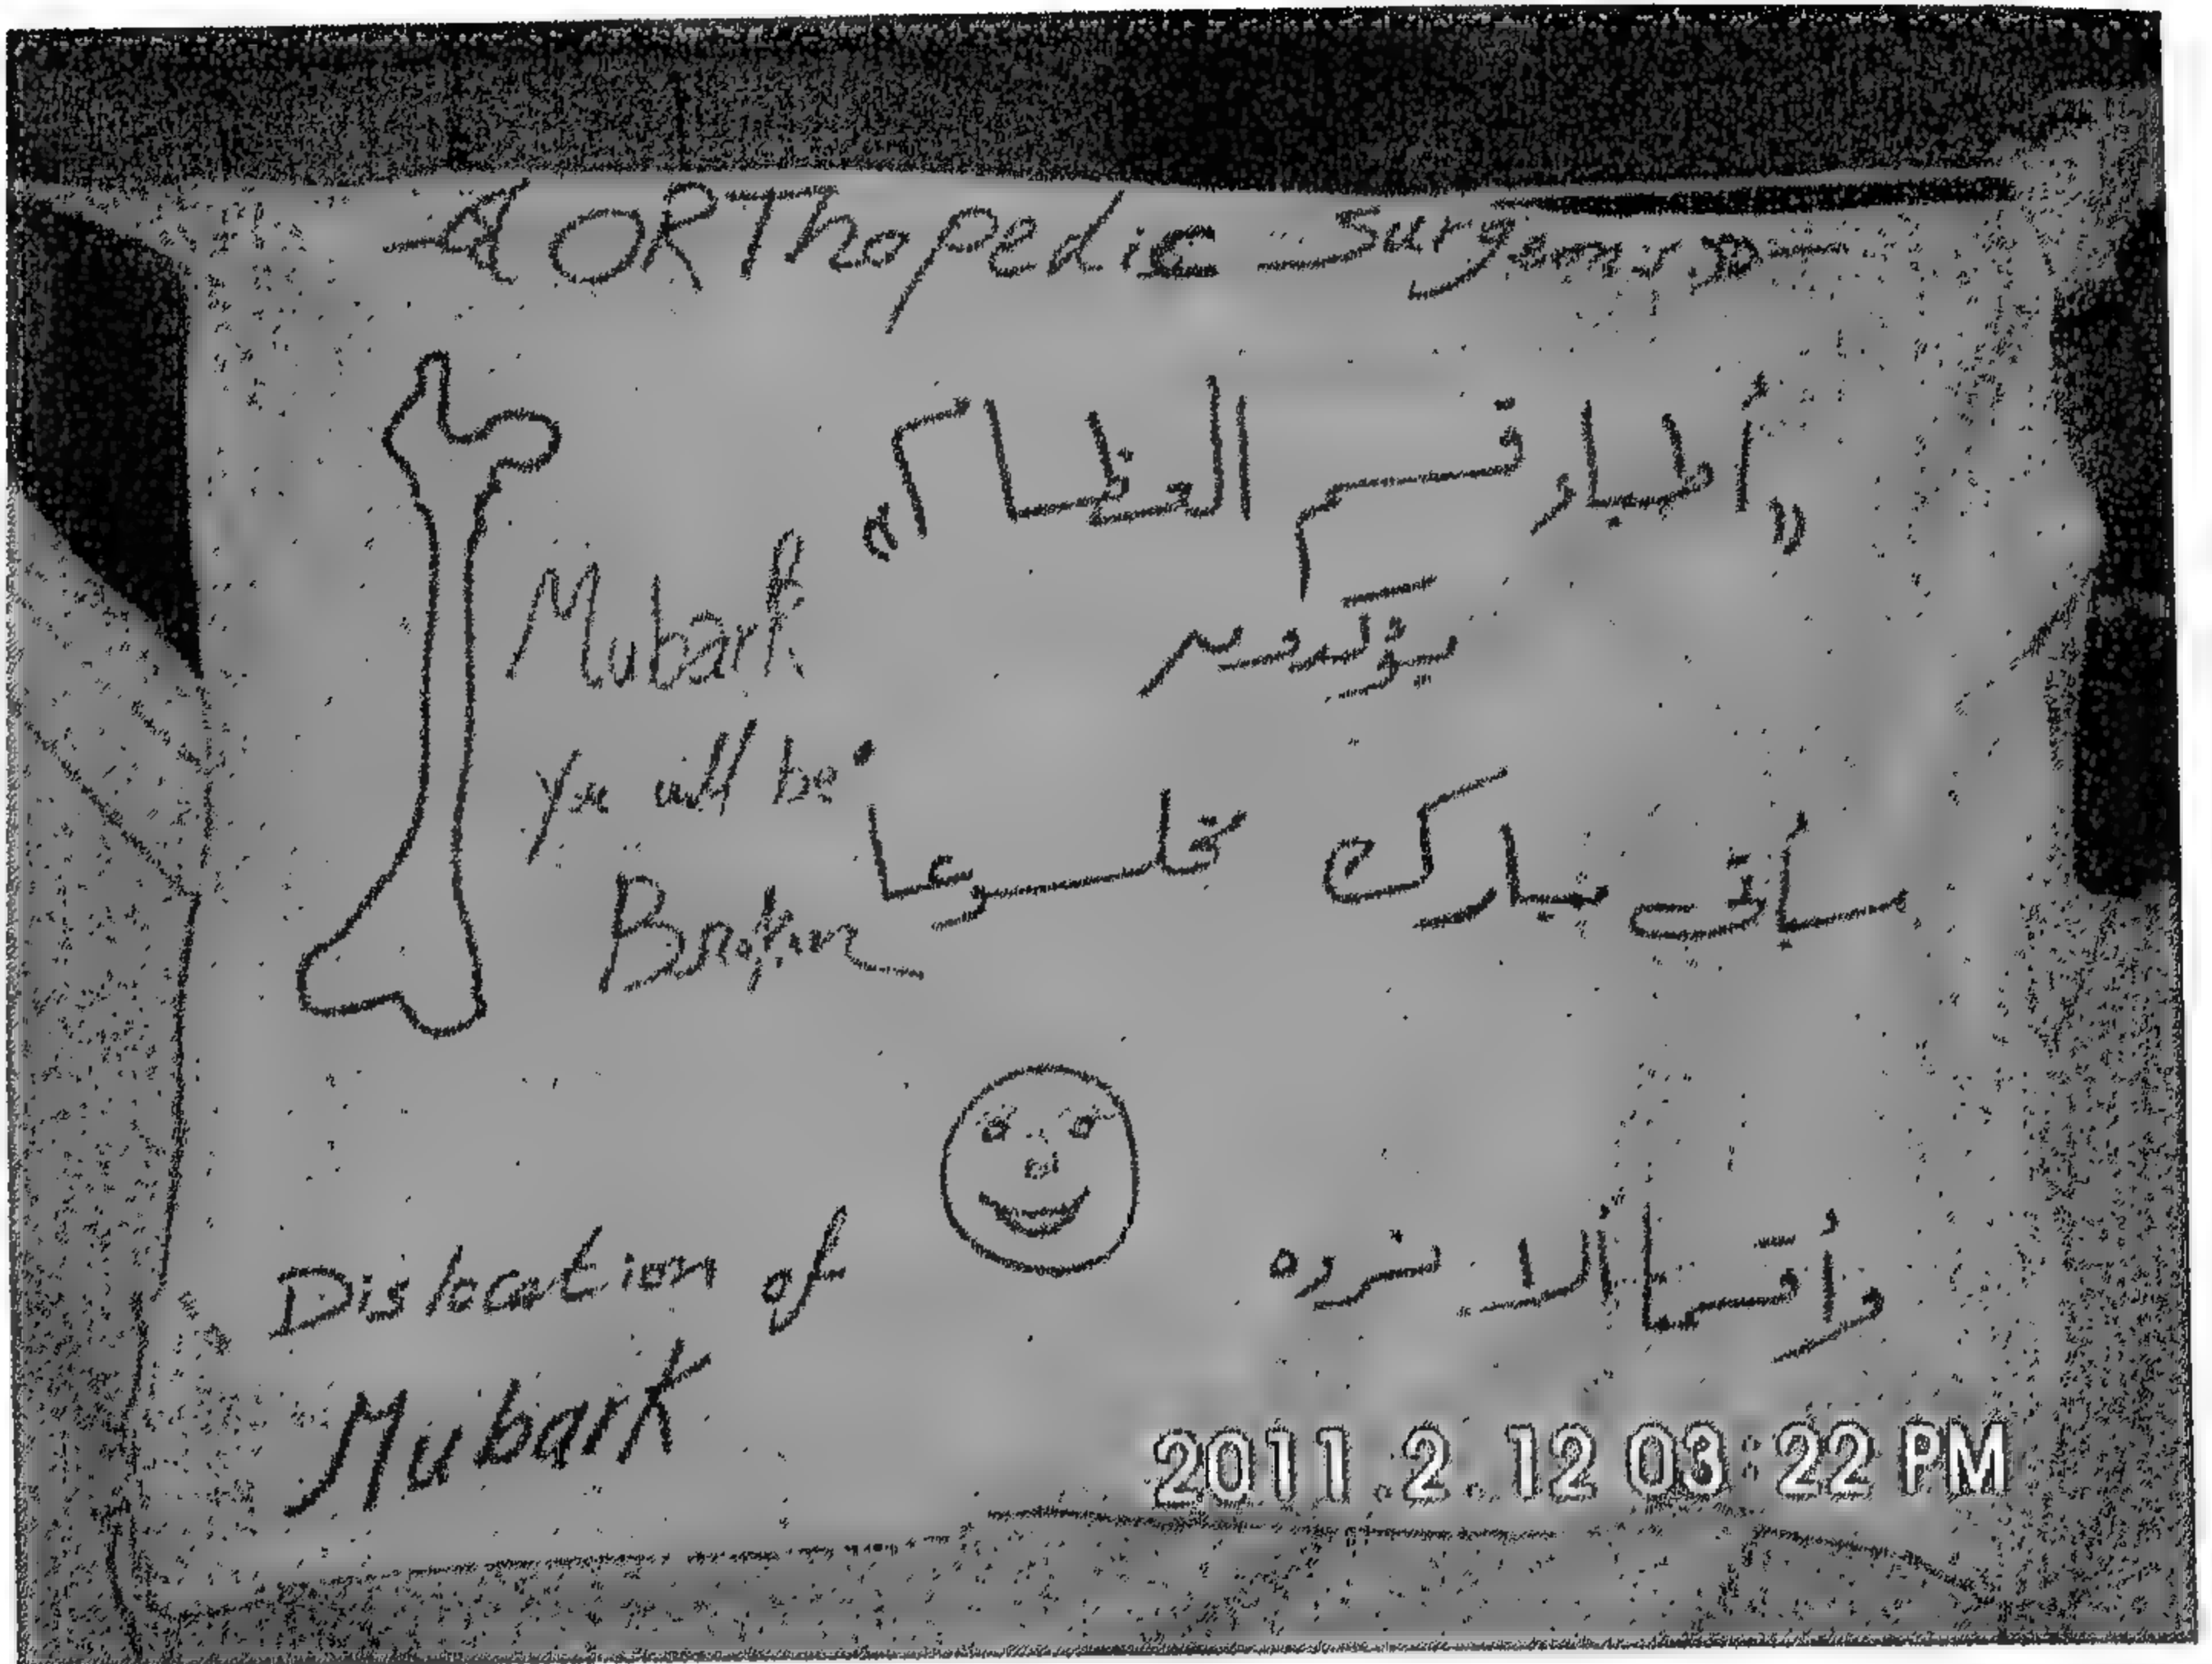 ORThopedic Surgeons
"أطباء قسم العظام"
يؤكدون
Mubark
You will be
Broken
سيأتى مبارك مخلوعا
وأقسمنا ألا نرده
Dislocation of
Mubark
2011.2.12 03:22 PM